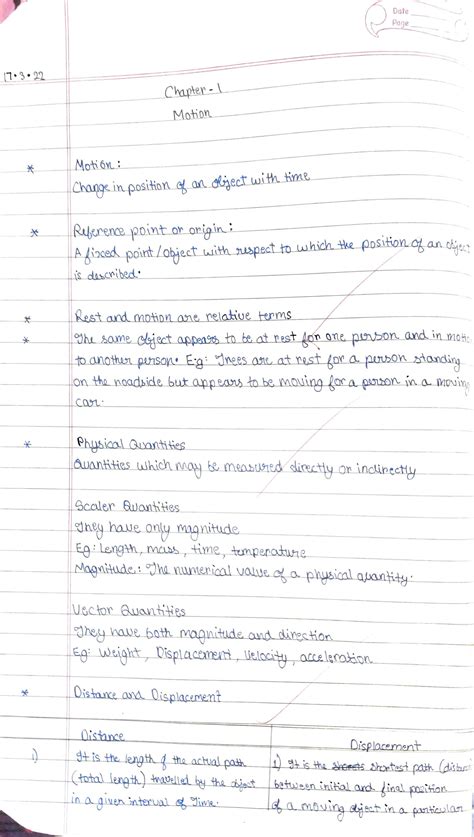 Date
Page
17.3.22
Chapter - 1
Motion
* Motion :
Change in position of an object with time
* Reference point or origin :
A fixed point/object with respect to which the position of an object
is described.
* Rest and motion are relative terms
* The same object appears to be at rest for one person and in motio
to another person. E.g: Trees are at rest for a person standing
on the roadside but appears to be moving for a person in a moving
car.
* Physical Quantities
Quantities which may be measured directly or indirectly
Scaler Quantities
They have only magnitude
Eg: Length, mass, time, temperature
Magnitude: The numerical value of a physical quantity.
Vector Quantities
They have both magnitude and direction
Eg: Weight, Displacement, Velocity, acceleration
* Distance and Displacement
Distance
Displacement
1) It is the length of the actual path
(total length) travelled by the object
in a given interval of Time.
1) It is the shortest path (distan
between initial and final position
of a moving object in a particular